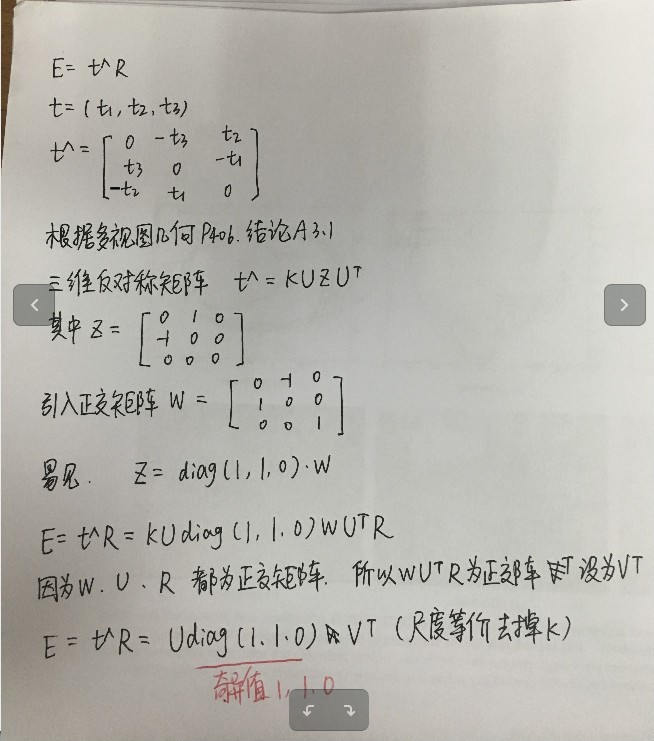 E = t^R
t = (t1, t2, t3)
t^ = [ 0 -t3 t2
t3 0 -t1
-t2 t1 0 ]
根据多视图几何 P406. 结论A3.1
三维反对称矩阵 t^ = KUZU^T
其中 Z = [ 0 1 0
-1 0 0
0 0 0 ]
引入正交矩阵 W = [ 0 -1 0
1 0 0
0 0 1 ]
易见. Z = diag(1,1,0)·W
E = t^R = KUdiag(1,1,0)WU^TR
因为W、U、R 都为正交矩阵. 所以WU^TR为正交阵 设为V^T
E = t^R = Udiag(1.1.0) V^T (尺度等价去掉K)
奇异值1,1.0